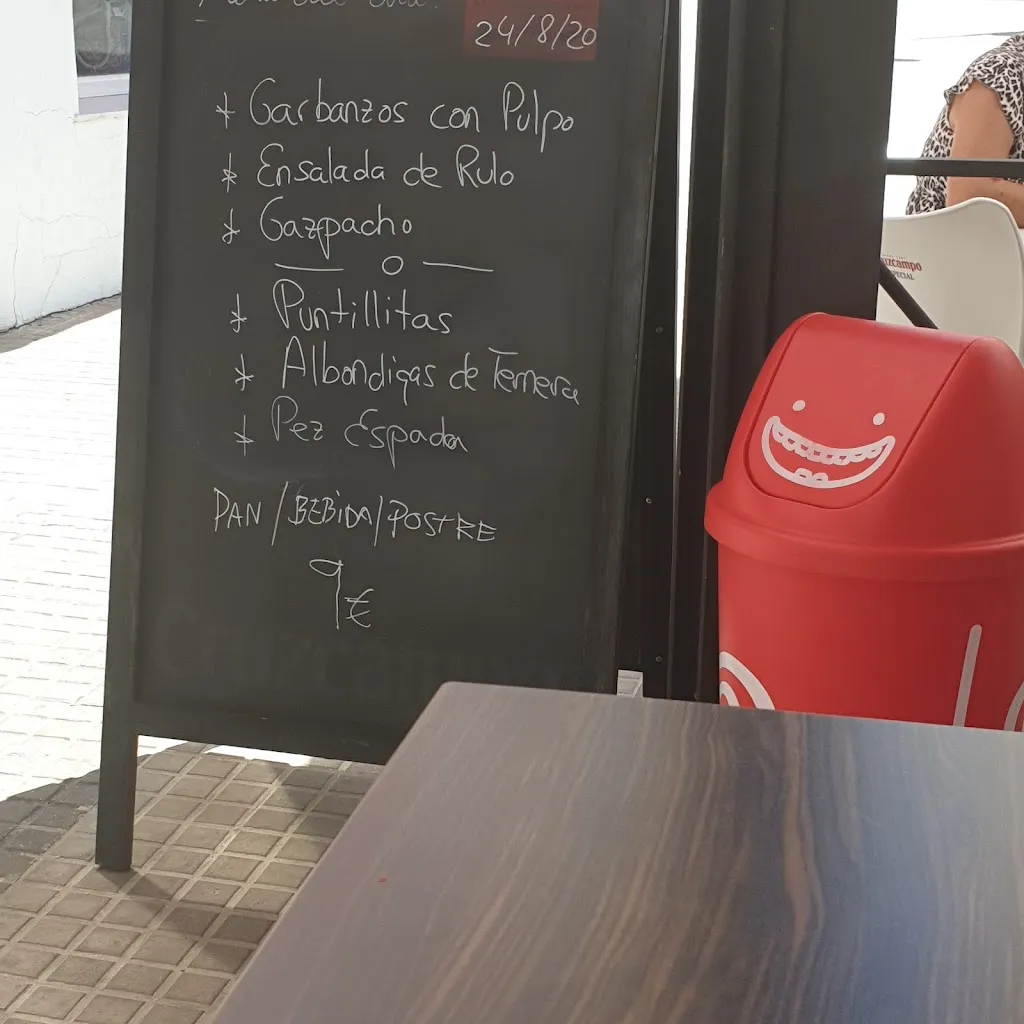 24/8/20
* Garbanzos con Pulpo
* Ensalada de Rulo
* Gazpacho
— o —
* Puntillitas
* Albondigas de Ternera
* Pez Espada
PAN / BEBIDA / POSTRE
9€
uzcampo
PECIAL